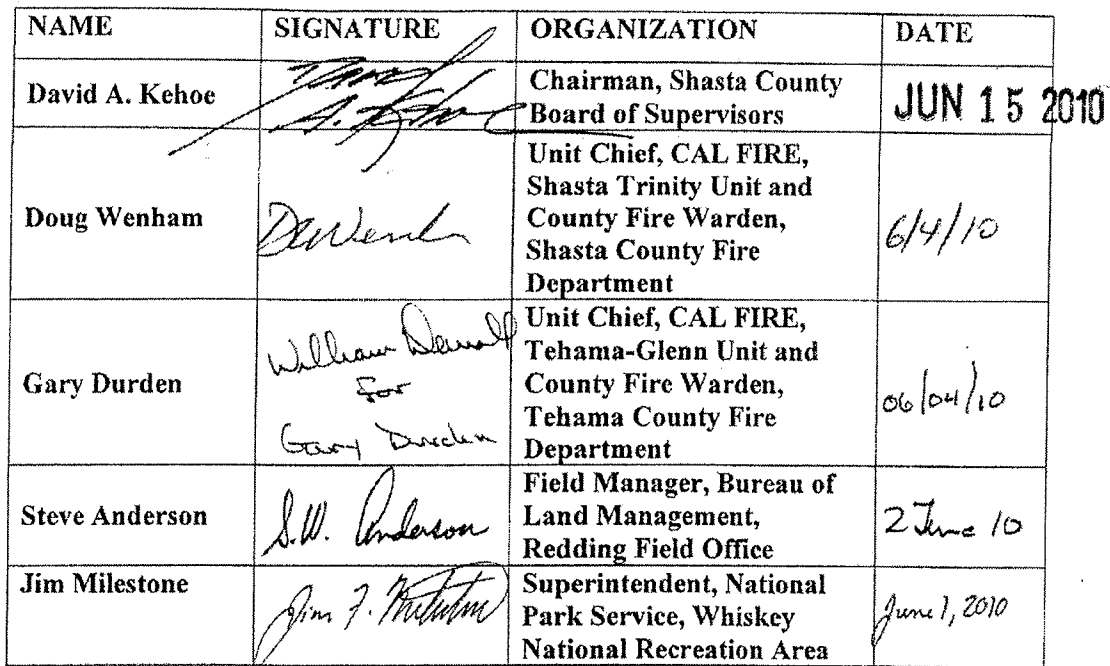 NAME SIGNATURE ORGANIZATION DATE
David A. Kehoe
David
A. Kehoe
Chairman, Shasta County
Board of Supervisors
JUN 15 2010
Doug Wenham
DWenham
Unit Chief, CAL FIRE,
Shasta Trinity Unit and
County Fire Warden,
Shasta County Fire
Department
6/4/10
Gary Durden
William
for
Gary Durden
Unit Chief, CAL FIRE,
Tehama-Glenn Unit and
County Fire Warden,
Tehama County Fire
Department
06/04/10
Steve Anderson
S.W. Anderson
Field Manager, Bureau of
Land Management,
Redding Field Office
2 June 10
Jim Milestone
Jim F. Milestone
Superintendent, National
Park Service, Whiskey
National Recreation Area
June 1, 2010